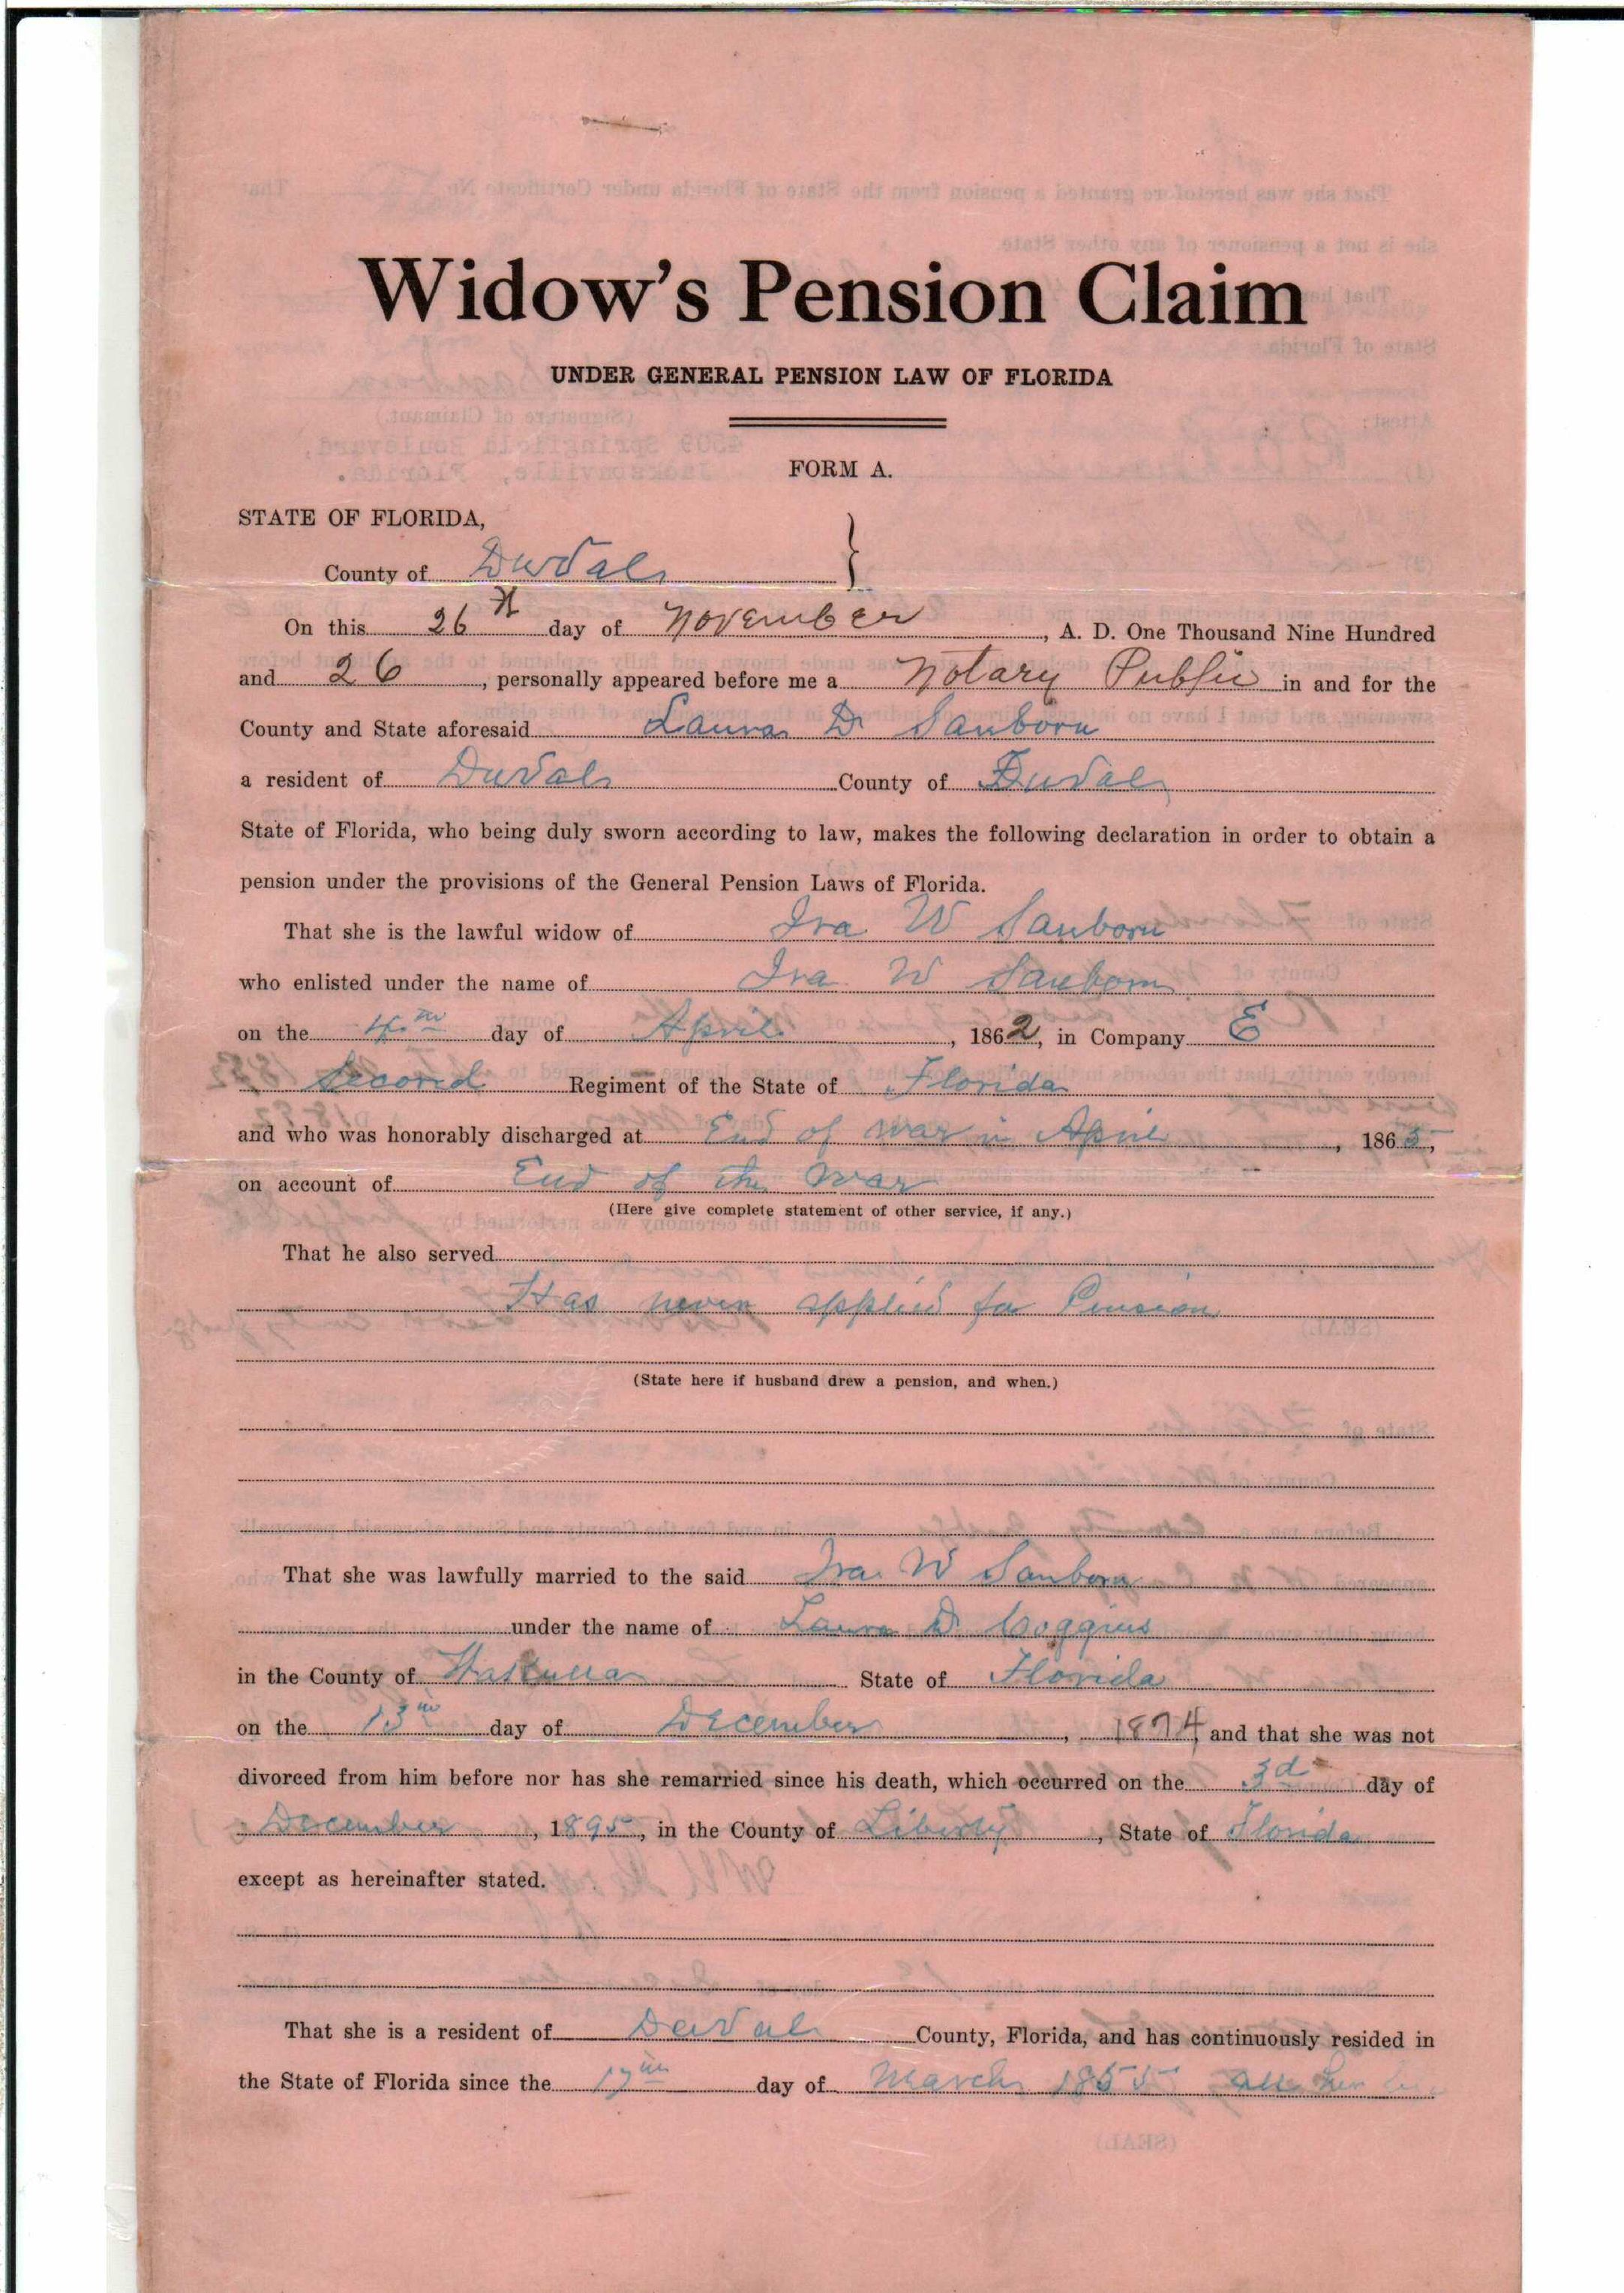 Widow's Pension Claim
UNDER GENERAL PENSION LAW OF FLORIDA
FORM A.
STATE OF FLORIDA,
County of Duval
On this 26th day of November, A. D. One Thousand Nine Hundred
and 26, personally appeared before me a Notary Public in and for the
County and State aforesaid Laura D Sanborn
a resident of Duval County of Duval
State of Florida, who being duly sworn according to law, makes the following declaration in order to obtain a
pension under the provisions of the General Pension Laws of Florida.
That she is the lawful widow of Ira W Sanborn
who enlisted under the name of Ira W Sanborn
on the day of April, 1862, in Company E
Second Regiment of the State of Florida
and who was honorably discharged at End of War in April, 1865,
on account of End of the War
(Here give complete statement of other service, if any.)
That he also served
Has never applied for Pension
(State here if husband drew a pension, and when.)
That she was lawfully married to the said Ira W Sanborn
under the name of Laura D Coggins
in the County of Wakulla State of Florida
on the 13th day of December, 1874, and that she was not
divorced from him before nor has she remarried since his death, which occurred on the 3d day of
December, 1895, in the County of Liberty, State of Florida
except as hereinafter stated.
That she is a resident of Duval County, Florida, and has continuously resided in
the State of Florida since the 17th day of March 1855 all her